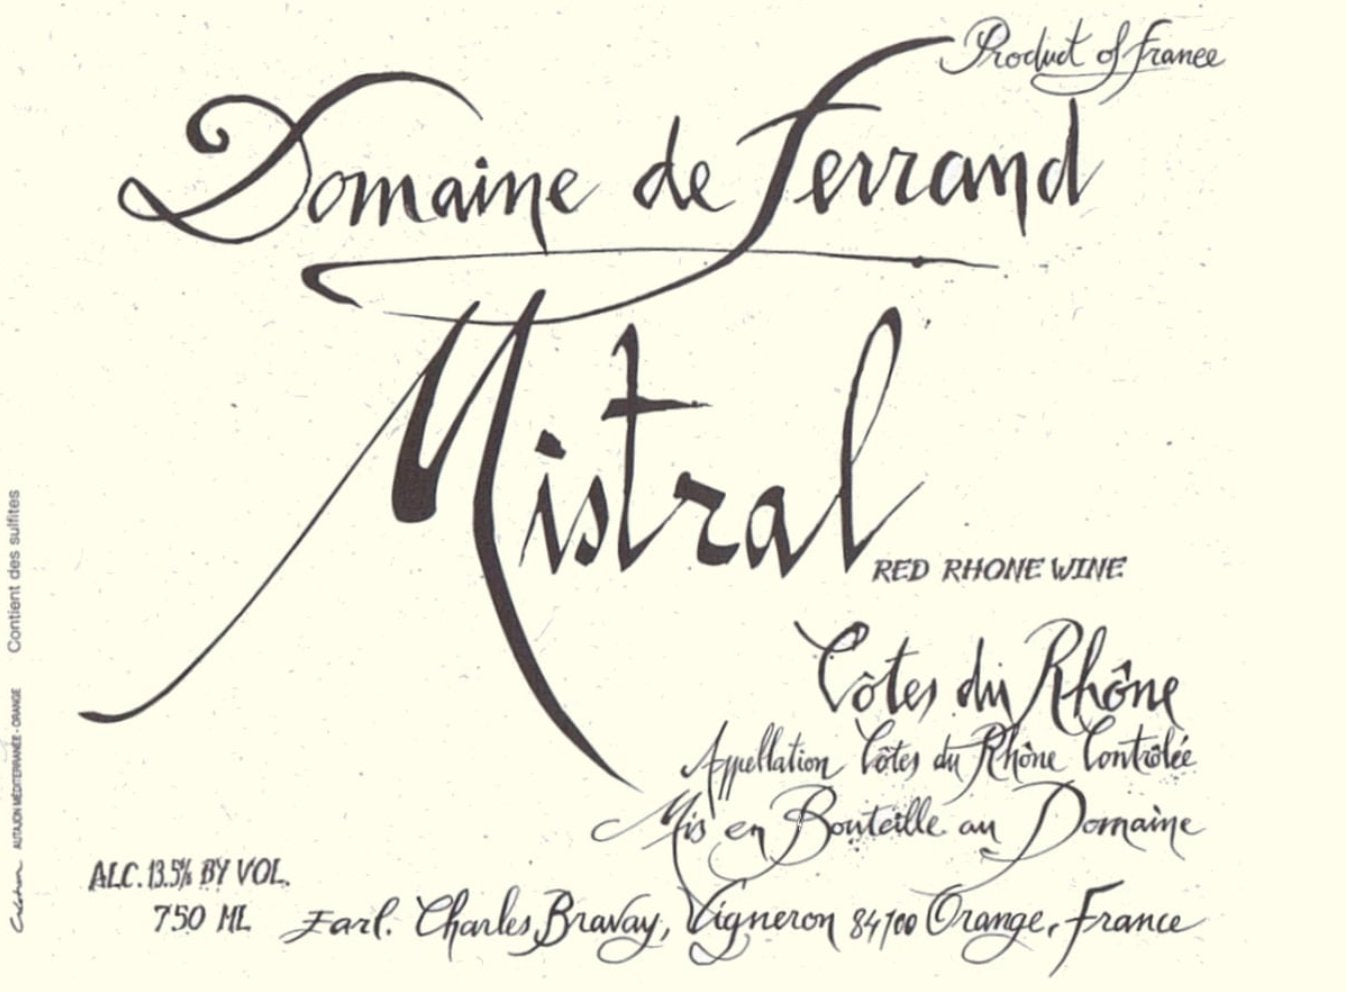 Product of France
Domaine de Ferrand
Mistral
RED RHONE WINE
Côtes du Rhône
Appellation Côtes du Rhône Contrôlée
Mis en Bouteille au Domaine
ALC. 13.5% BY VOL.
750 ML
Earl. Charles Bravay, Vigneron 84100 Orange, France
Contient des sulfites
Création AUTAJON MÉDITERRANÉE - ORANGE